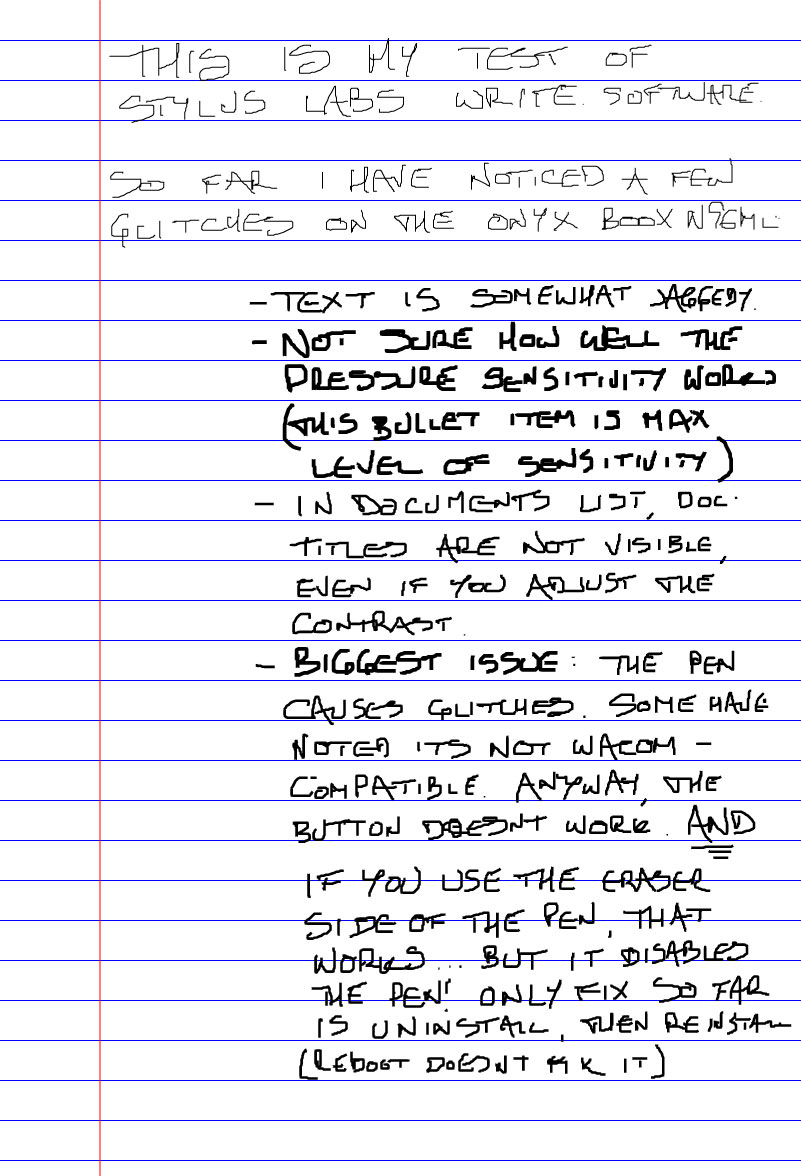 THIS IS MY TEST OF
STYLUS LABS WRITE. SOFTWARE.
SO FAR I HAVE NOTICED A FEW
GLITCHES ON THE ONYX BOOX N96ML.
- TEXT IS SOMEWHAT JAGGEDY.
- NOT SURE HOW WELL THE
PRESSURE SENSITIVITY WORKS
(THIS BULLET ITEM IS MAX
LEVEL OF SENSITIVITY)
- IN DOCUMENTS LIST, DOC.
TITLES ARE NOT VISIBLE,
EVEN IF YOU ADJUST THE
CONTRAST.
- BIGGEST ISSUE: THE PEN
CAUSES GLITCHES. SOME HAVE
NOTED ITS NOT WACOM -
COMPATIBLE. ANYWAY, THE
BUTTON DOESNT WORK. AND
IF YOU USE THE ERASER
SIDE OF THE PEN, THAT
WORKS... BUT IT DISABLES
THE PEN! ONLY FIX SO FAR
IS UNINSTALL, THEN REINSTALL
(REBOOT DOESNT IT)